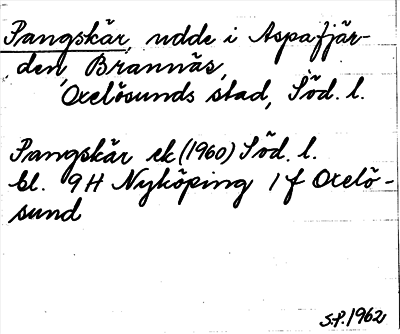 Pangskär, udde i Aspafjär-
den, Brannäs,
Oxelösunds stad, Söd. l.
Pangskär ek (1960) Söd. l.
bl. 9H Nyköping 1 f Oxelö-
sund
S.P. 1962